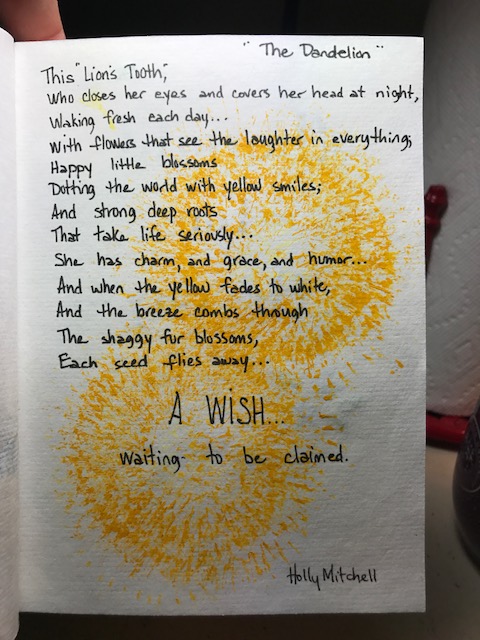 "The Dandelion"
This "Lion's Tooth",
Who closes her eyes and covers her head at night,
Waking fresh each day...
With flowers that see the laughter in everything;
Happy little blossoms
Dotting the world with yellow smiles;
And strong deep roots
That take life seriously...
She has charm, and grace, and humor...
And when the yellow fades to white,
And the breeze combs through
The shaggy fur blossoms,
Each seed flies away...
A WISH...
waiting to be claimed.
Holly Mitchell